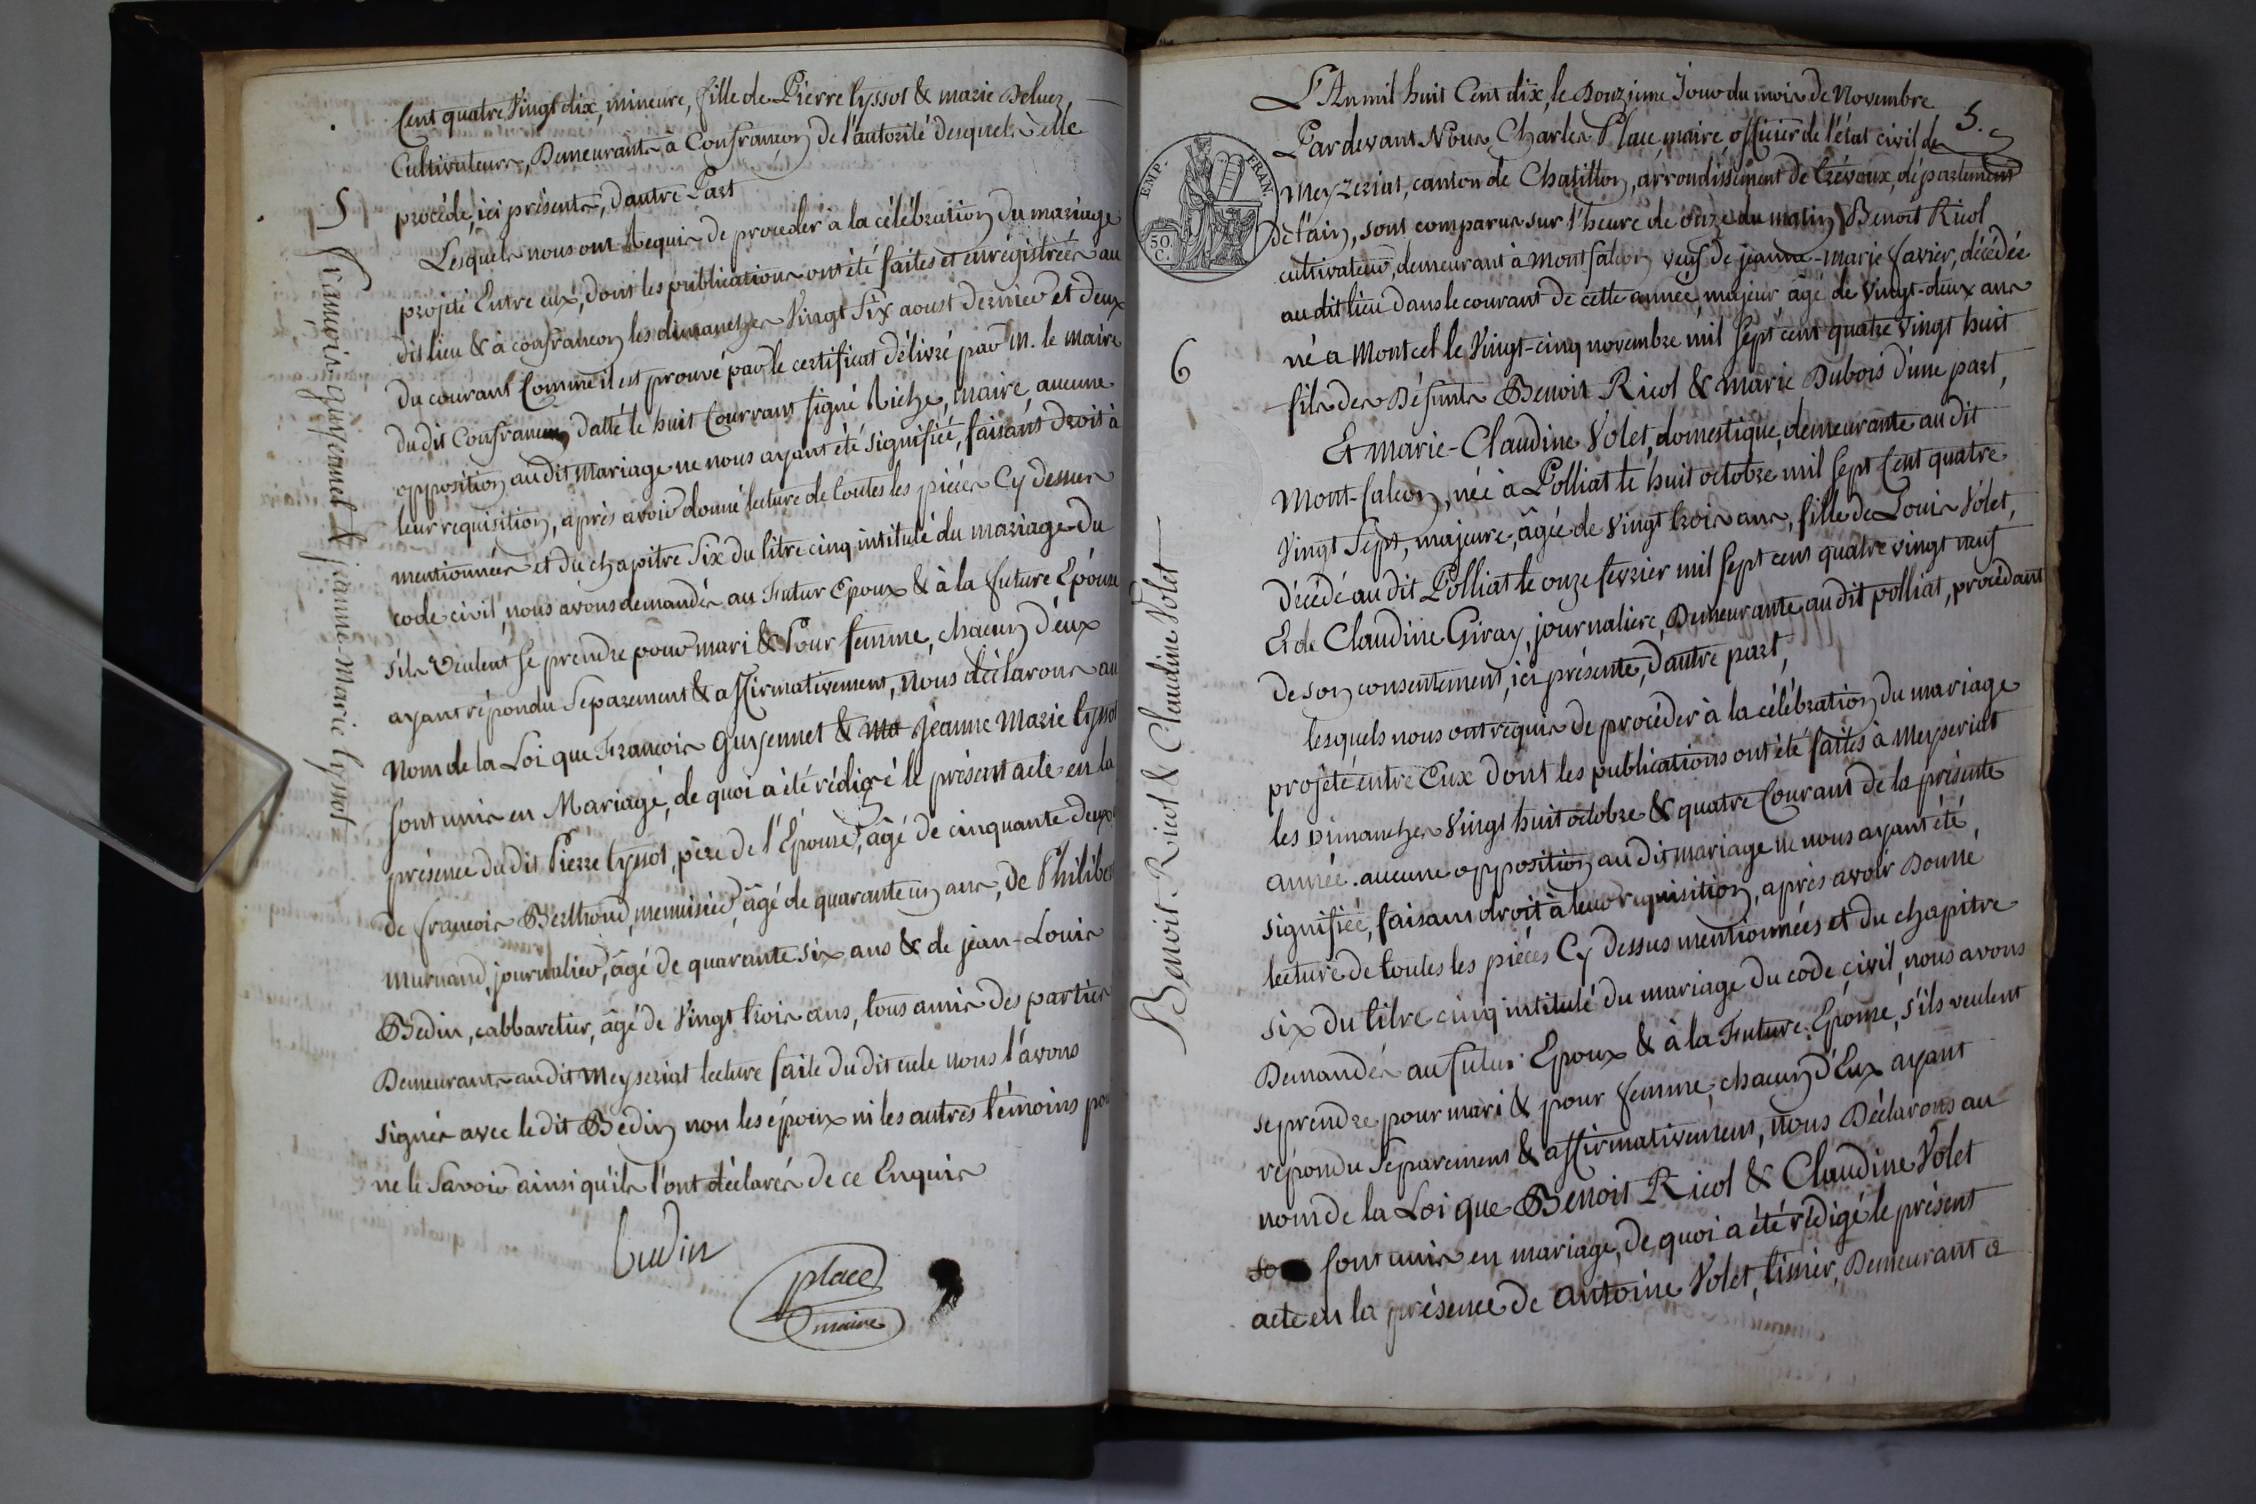 Cent quatre Vingt dix, mineure, fille de Pierre Cyssot & marie Beluez,
Cultivateurs, Demeurants à Confrançon de l'autorité desquels elle
procéde, ici présents, d'autre Part
Lesquels nous ont Requis de procéder à la célébration du mariage
projeté Entre eux, dont les publications ont été faites et enrégistrées au
dit lieu & à confrançon les dimanches Vingt Six aoust dernier et deux
du courant Comme il est prouvé par le certificat délivré par M. le maire
du dit Confrançon datté le huit Courrant signé Riche, maire, aucune
opposition au dit mariage ne nous ayant été signifiée, faisant droit à
leur requisition, après avoir donné lecture de toutes les piéces Cy dessus
mentionnées et du chapitre Six du titre cinq intitulé du mariage Du
code civil, nous avons demandés au Futur Epoux & à la future Epouse
s'ils veulent se prendre pour mari & Pour femme, chacun d'eux
ayant répondu Séparement & affirmativement, nous déclarons au
Nom de la Loi que François Guyennet & ma Jeanne Marie Cyssot
sont unis en Mariage, de quoi a été rédigé le présent acte en la
présence du dit Pierre Cyssot, père de l'Epouse, âgé de cinquante deux
de françois Berthoud, menuisier, âgé de quarante un ans, de Philibert
murnand, journalier, âgé de quarante six ans & de jean-Louis
Bedin, cabbaretier, âgé de Vingt trois ans, tous amis des parties
Demeurants au dit meyseriat lecture faite du dit acte nous l'avons
signés avec le dit Bedin non les époux ni les autres témoins pour
ne le Savoir ainsi qu'ils l'ont déclarés de ce Enquis
budin
place
maire
5 françois guyennet & jeanne-Marie Cyssot
5.
EMP. FRAN.
50. C.
L'An mil huit Cent dix, le Douzieme Jour du mois de Novembre
Pardevant Nous Charles Place, maire, officier de l'état civil de
Meyzeriat, canton de Chatillon, arrondissement de Trévoux, département
de l'ain, sont comparus sur l'heure de onze du matin Benoit Ricol
cultivateur, demeurant à Montfalcon veuf de jeanne-marie favier, décédée
au dit lieu dans le courant de cette année, majeur, âgé de Vingt-deux ans
né a Montcet le Vingt-cinq novembre mil sept cent quatre vingt huit
fils des Défunts Benoit Ricol & marie Dubois d'une part,
Et marie-Claudine Volet, domestique, demeurante au dit
Mont-falcon, née à Polliat le huit octobre mil sept Cent quatre
Vingt Sept, majeure, âgée de Vingt trois ans, fille de Louis Volet,
Décédé au dit Polliat le onze fevrier mil sept cent quatre vingt neuf
Et de Claudine Giray, journaliere, Demeurante au dit polliat, procédant
de son consentement, ici présente, d'autre part,
lesquels nous ont requis de procéder à la célébration du mariage
projeté entre Eux Dont les publications ont été faites à Meyseriat
les Dimanches Vingt huit octobre & quatre Courant de la présente
année. aucune opposition au dit mariage ne nous ayant été
signifiée, faisant droit à leur requisition, après avoir Donné
lecture de toutes les piéces Cy dessus mentionnées et du chapitre
six du titre cinq intitulé du mariage du code civil, nous avons
Demandés au futur Epoux & à la Future Epouse, s'ils veulent
se prendre pour mari & pour femme, chacun d'Eux ayant
répondu Séparement & affirmativement, nous Déclarons au
nom de la Loi que Benoit Ricol & Claudine Volet
so sont unis en mariage, de quoi a été rédigé le présent
acte en la présence de antoine Volet, tissier, Demeurant a
6
Benoit Ricol & Claudine Volet